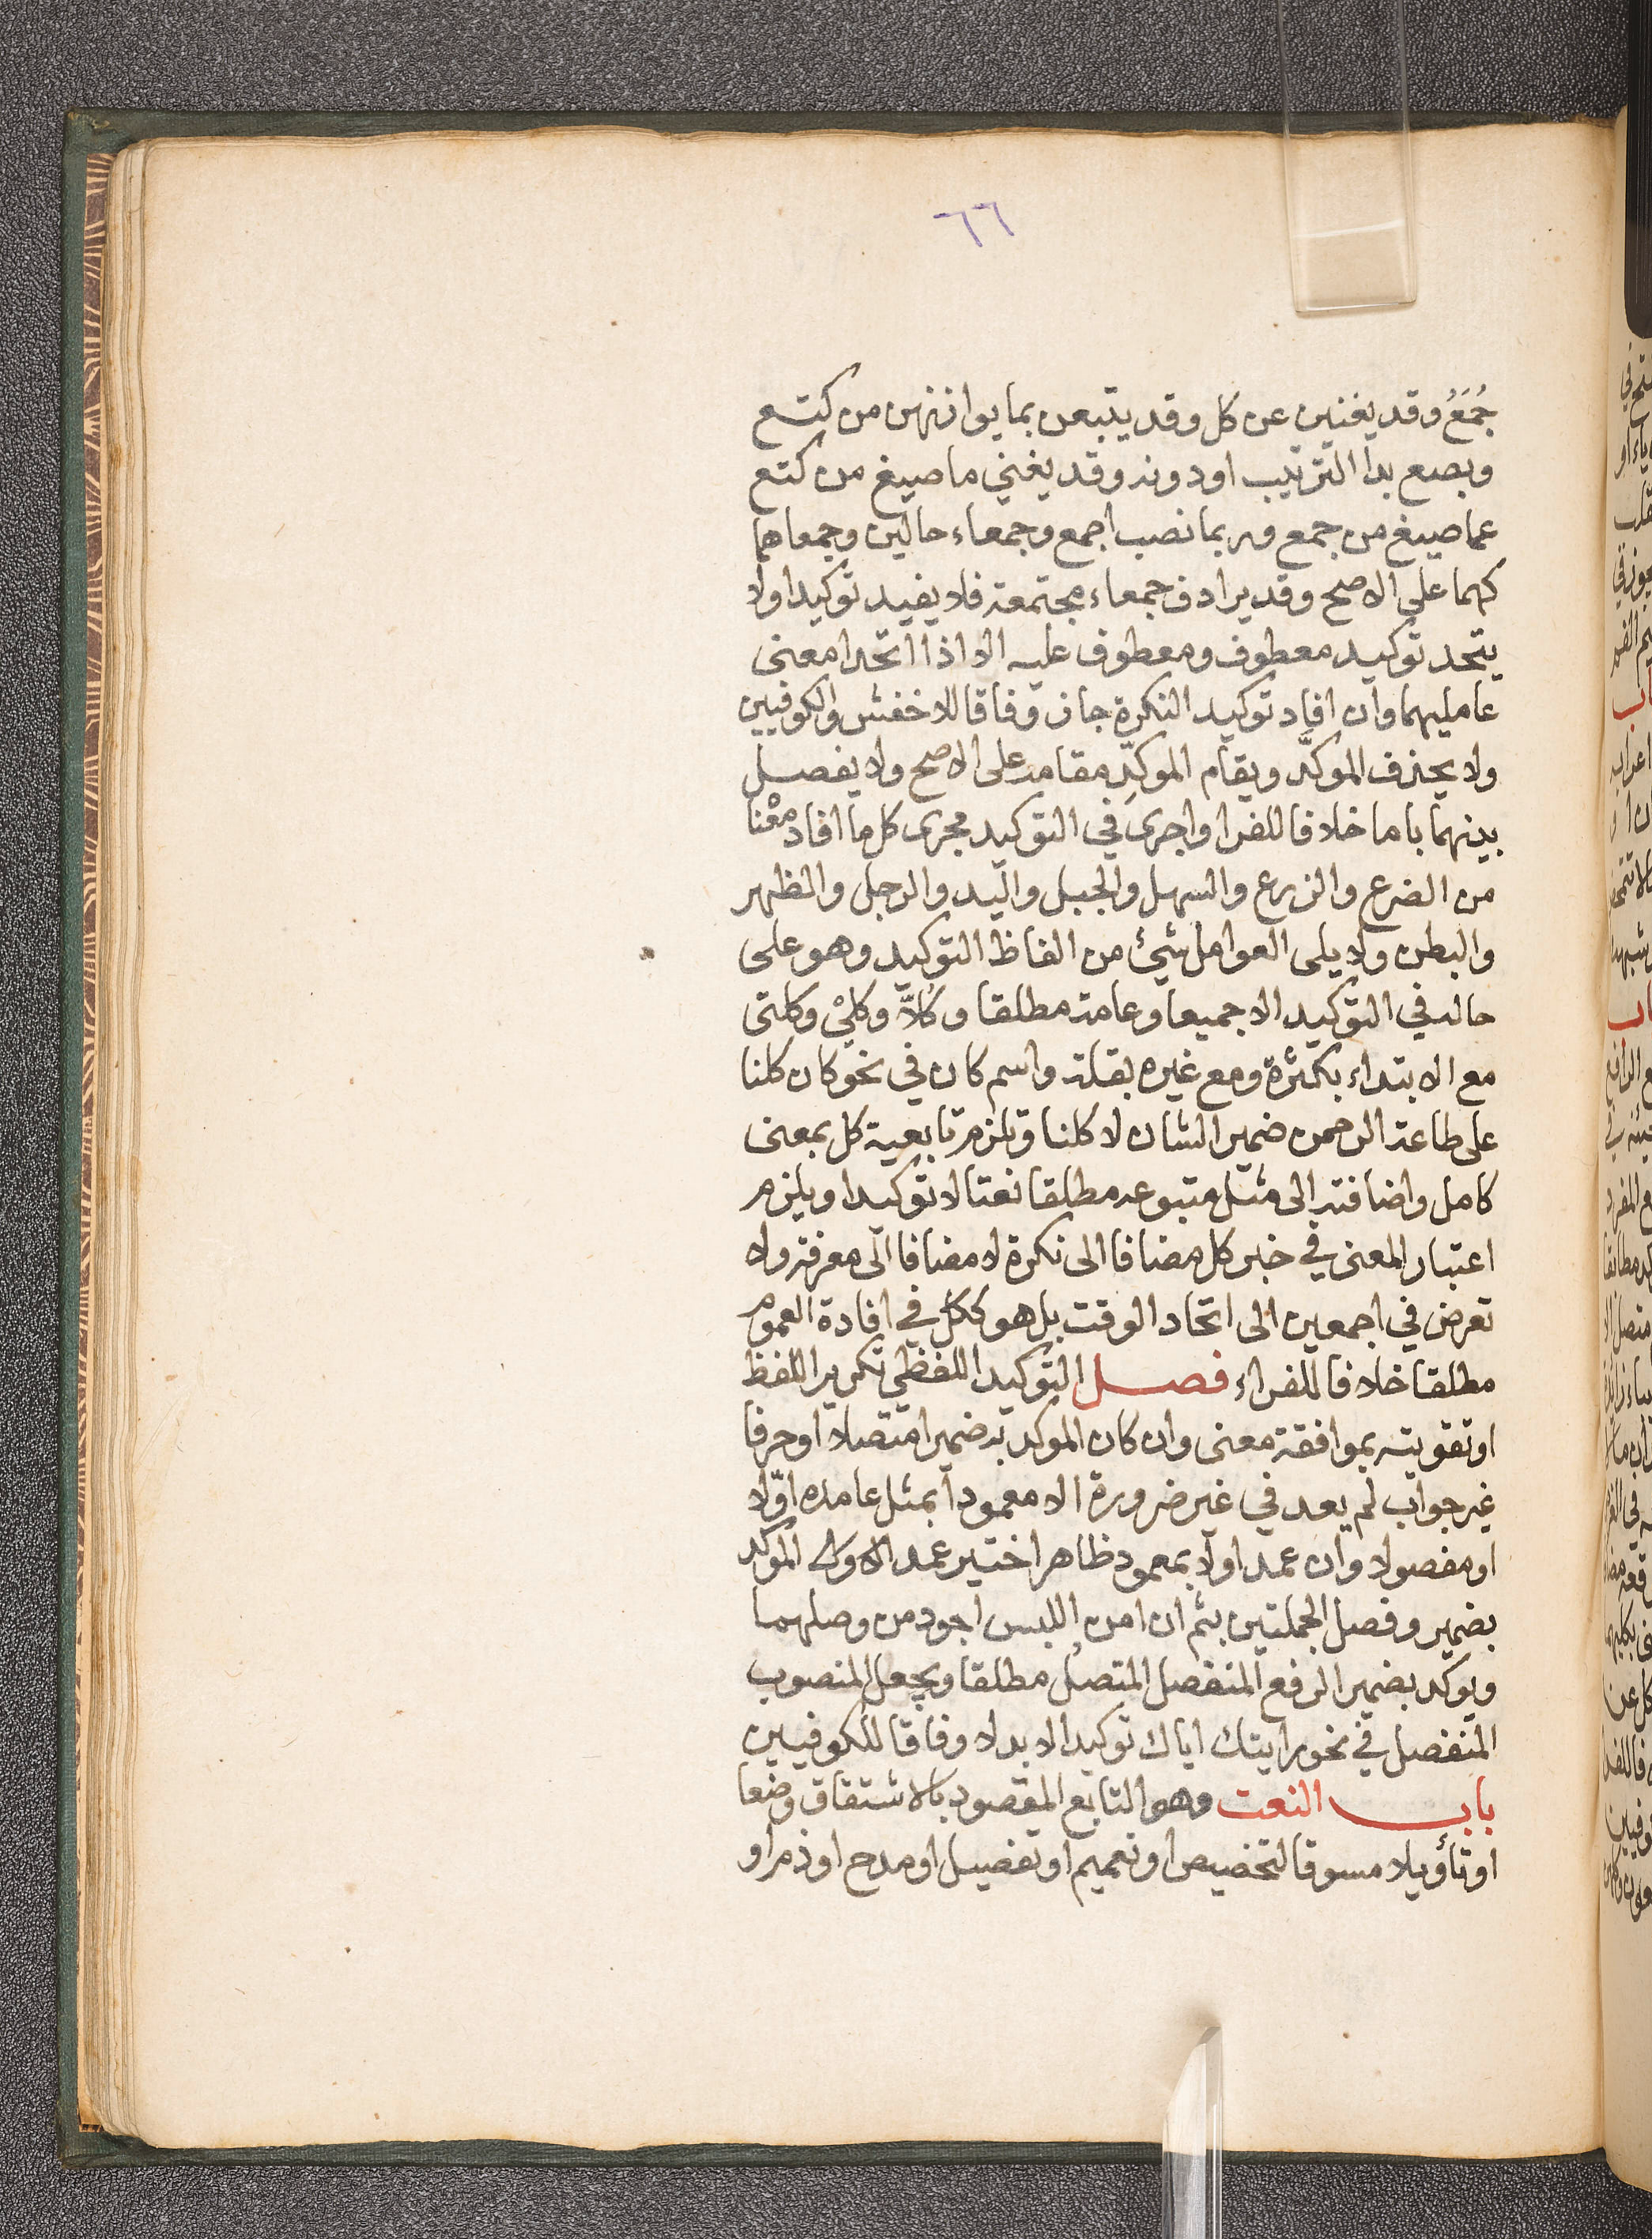 ٦٦
جُمَعُ وقد يغنين عن كل وقد يتبعن بما يوازنهن من كتع
وبصع بدا الترتيب اودونه وقد يغني ما صيغ من كتع
عما صيغ من جمع وربما نصب اجمع وجمعاء حالين وجمعاهما
كهما على الاصح وقد يراد ف جمعاء مجتمعة فلا يفيد توكيدا ولا
يتحد توكيد معطوف ومعطوف عليه الا اذا اتحدا معنى
عامليهما وان افاد توكيد النكرة جاز وفاقا للاخفش والكوفيين
ولا يحذف الموكَّد ويقام الموكِّد مقامه على الاصح ولا يفصل
بينهما باما خلافا للفرا واجرى في التوكيد مجرى كل ما افاد معْنا
من الضرع والزرع والسهل والجبل واليد والرجل والظهر
والبطن ولا يلى العوامل شئ من الفاظ التوكيد وهو على
حاله في التوكيد الا جميعا وعامة مطلقا وكُلاًّ وكليْ وكلتى
مع الابتداء بكثرة ومع غيره بقلة واسم كان في نحو كان كلنا
على طاعة الرحمن ضمير الشان لا كلنا وتلزم تابعية كل بمعنى
كامل واضافته الى مثل متبوعه مطلقا نعتا لا توكيدا ويلزم
اعتبار المعنى في خبر كل مضافا الى نكرة لا مضافا الى معرفة ولا
تعرض في اجمعين الى اتحاد الوقت بل هو ككل في افادة العموم
مطلقا خلافا للفراء فصل التوكيد اللفظي تكرير اللفظ
او تقويته بموافقة معنى وان كان الموكد به ضميرا متصلا او حرفا
غير جواب لم يعد في غير ضرورة الا معمودا بمثل عامده اوّلا
او مفصولا وان عمد اولا بمعمود ظاهر اختير عمد الاول الموكد
بضمير وفصل الجملتين بثم ان امن اللبس اجود من وصلهما
ويوكد بضمير الرفع المنفصل المتصل مطلقا ويجعل المنصوب
المنفصل في نحو رايتك اياك توكيدا لا بدلا وفاقا للكوفيين
باب النعت وهو التابع المقصود بالاشتقاق وضعا
او تأويلا مسوقا لتخصيص او تعميم او تفصيل او مدح او ذم او